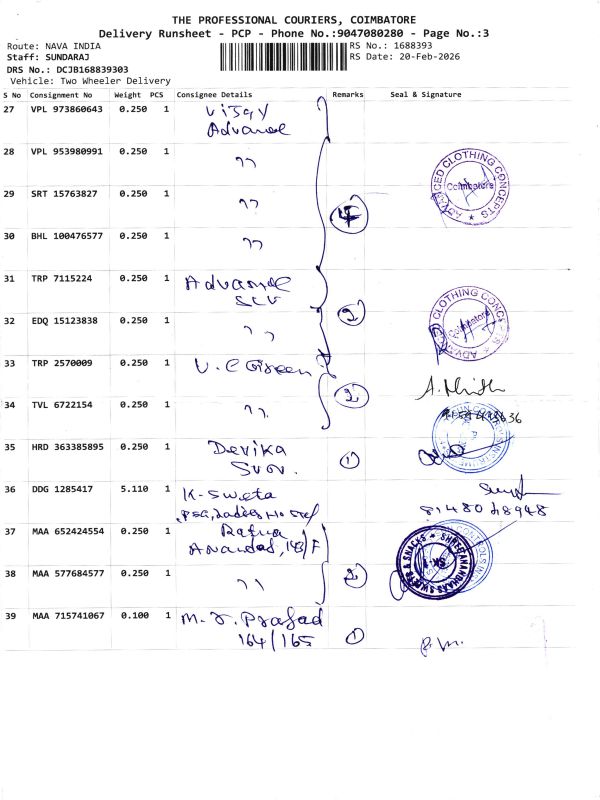 THE PROFESSIONAL COURIERS, COIMBATORE
Delivery Runsheet - PCP - Phone No.:9047080280 - Page No.:3
Route: NAVA INDIA
RS No.: 1688393
Staff: SUNDARAJ
RS Date: 20-Feb-2026
DRS No.: DCJB168839303
Vehicle: Two Wheeler Delivery
S No Consignment No Weight PCS Consignee Details Remarks Seal & Signature
27 VPL 973860643 0.250 1 Vijay
Advance
28 VPL 953980991 0.250 1 "
ADVANCED CLOTHING CONCEPTS
Coimbatore
29 SRT 15763827 0.250 1 "
4
30 BHL 100476577 0.250 1 "
31 TRP 7115224 0.250 1 Advance
SLV
2
CLOTHING CONCE
Coimbatore
32 EDQ 15123838 0.250 1 "
33 TRP 2570009 0.250 1 V. C Green
2
34 TVL 6722154 0.250 1 "
35 HRD 363385895 0.250 1 Devika
1
36 DDG 1285417 5.110 1 K-Sweta
PSG, Ladies
8148028948
37 MAA 652424554 0.250 1 Ratna
Anandas, 143/F
SHREE ANANDHAAS SWEETS & SNACKS
38 MAA 577684577 0.250 1 "
2
39 MAA 715741067 0.100 1 M. J. Prasad
164/165
1